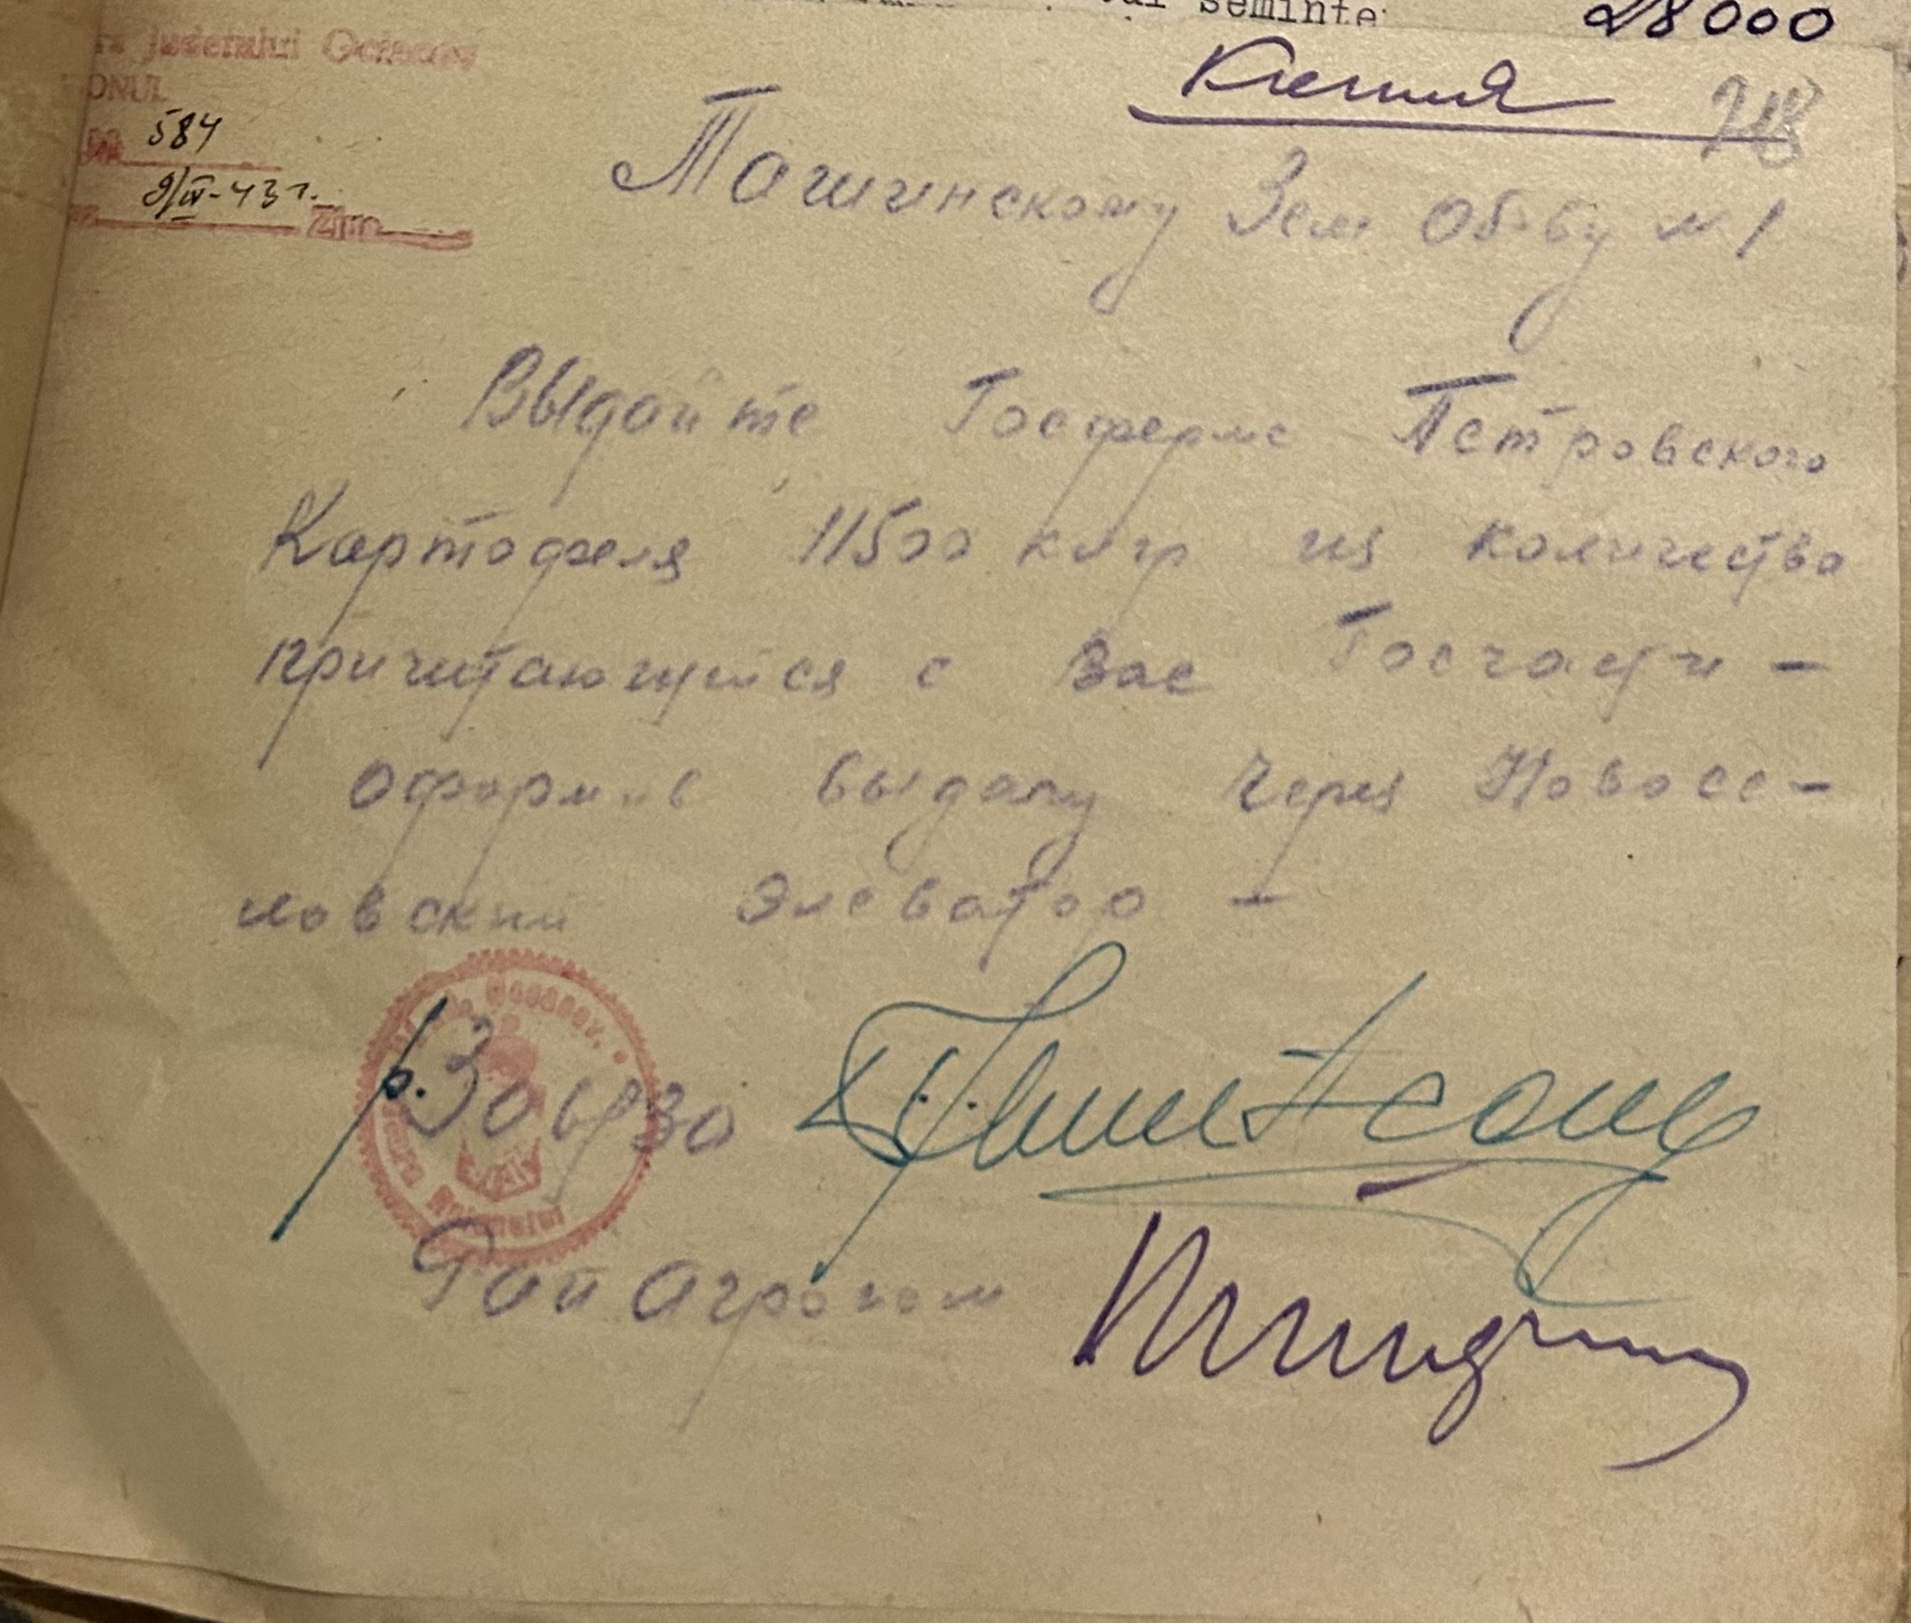 seminte
28000
Копия
Judetului
ONUL
584
9/III-43 г.
Ташинскому Зем Об-ву № 1
Выдайте Госферме Петровского
Картофеля 11500 клгр из количества
причитающейся с Вас Госчасти -
оформив выдачу через Новосе-
ловский Элеватор -
р. Зав рзо
Рай Агроном